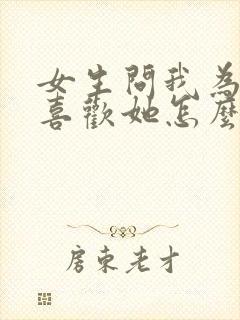 女生問我為
喜歡她怎麼
房東老才